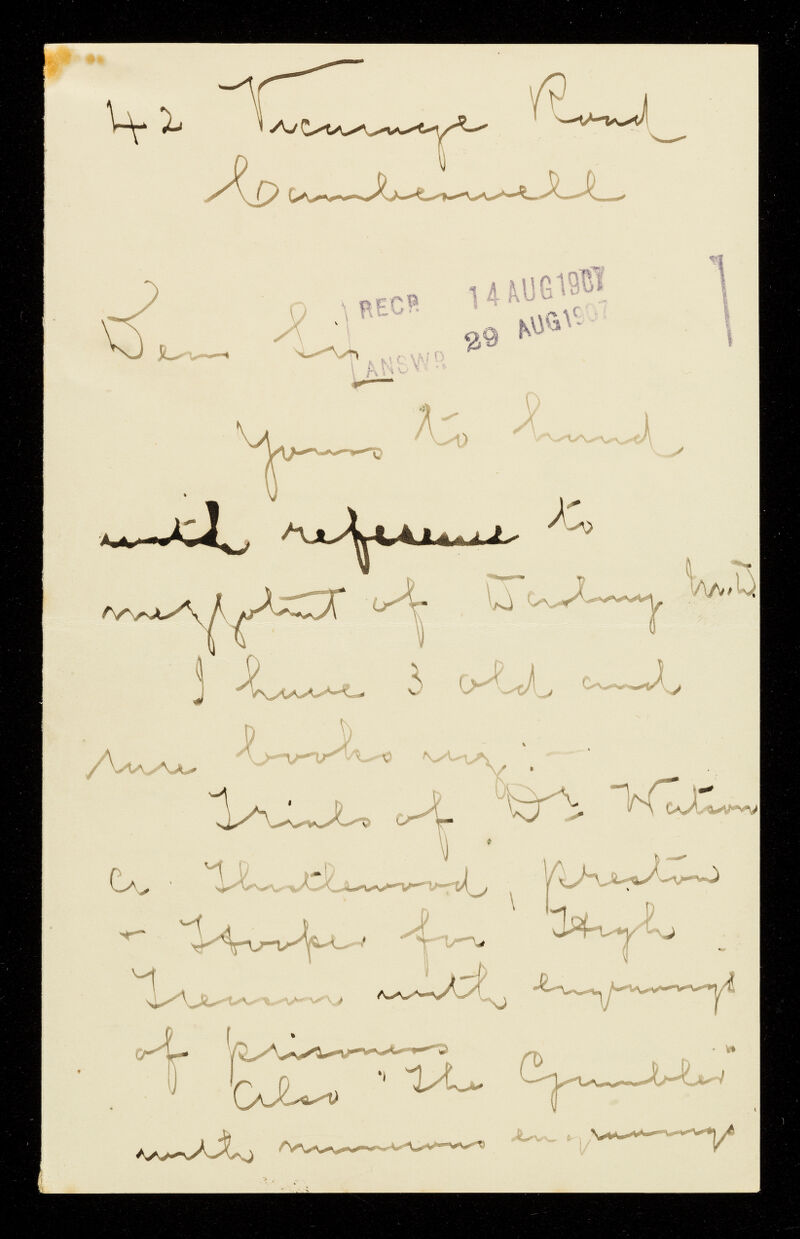 42 Vicarage Road
Camberwell
RECD 14 AUG 1907
ANSWD 29 AUG 1907
Dear Sir
Yours to hand
with reference to
mezzotint of M.D.
I have 3 old and
rare books viz:—
Trials of Dr Watson
A Thistlewood, Preston
+ Hooper for High
Treason with engravings
of prisoners
Also "The Gambler"
with numerous engravings